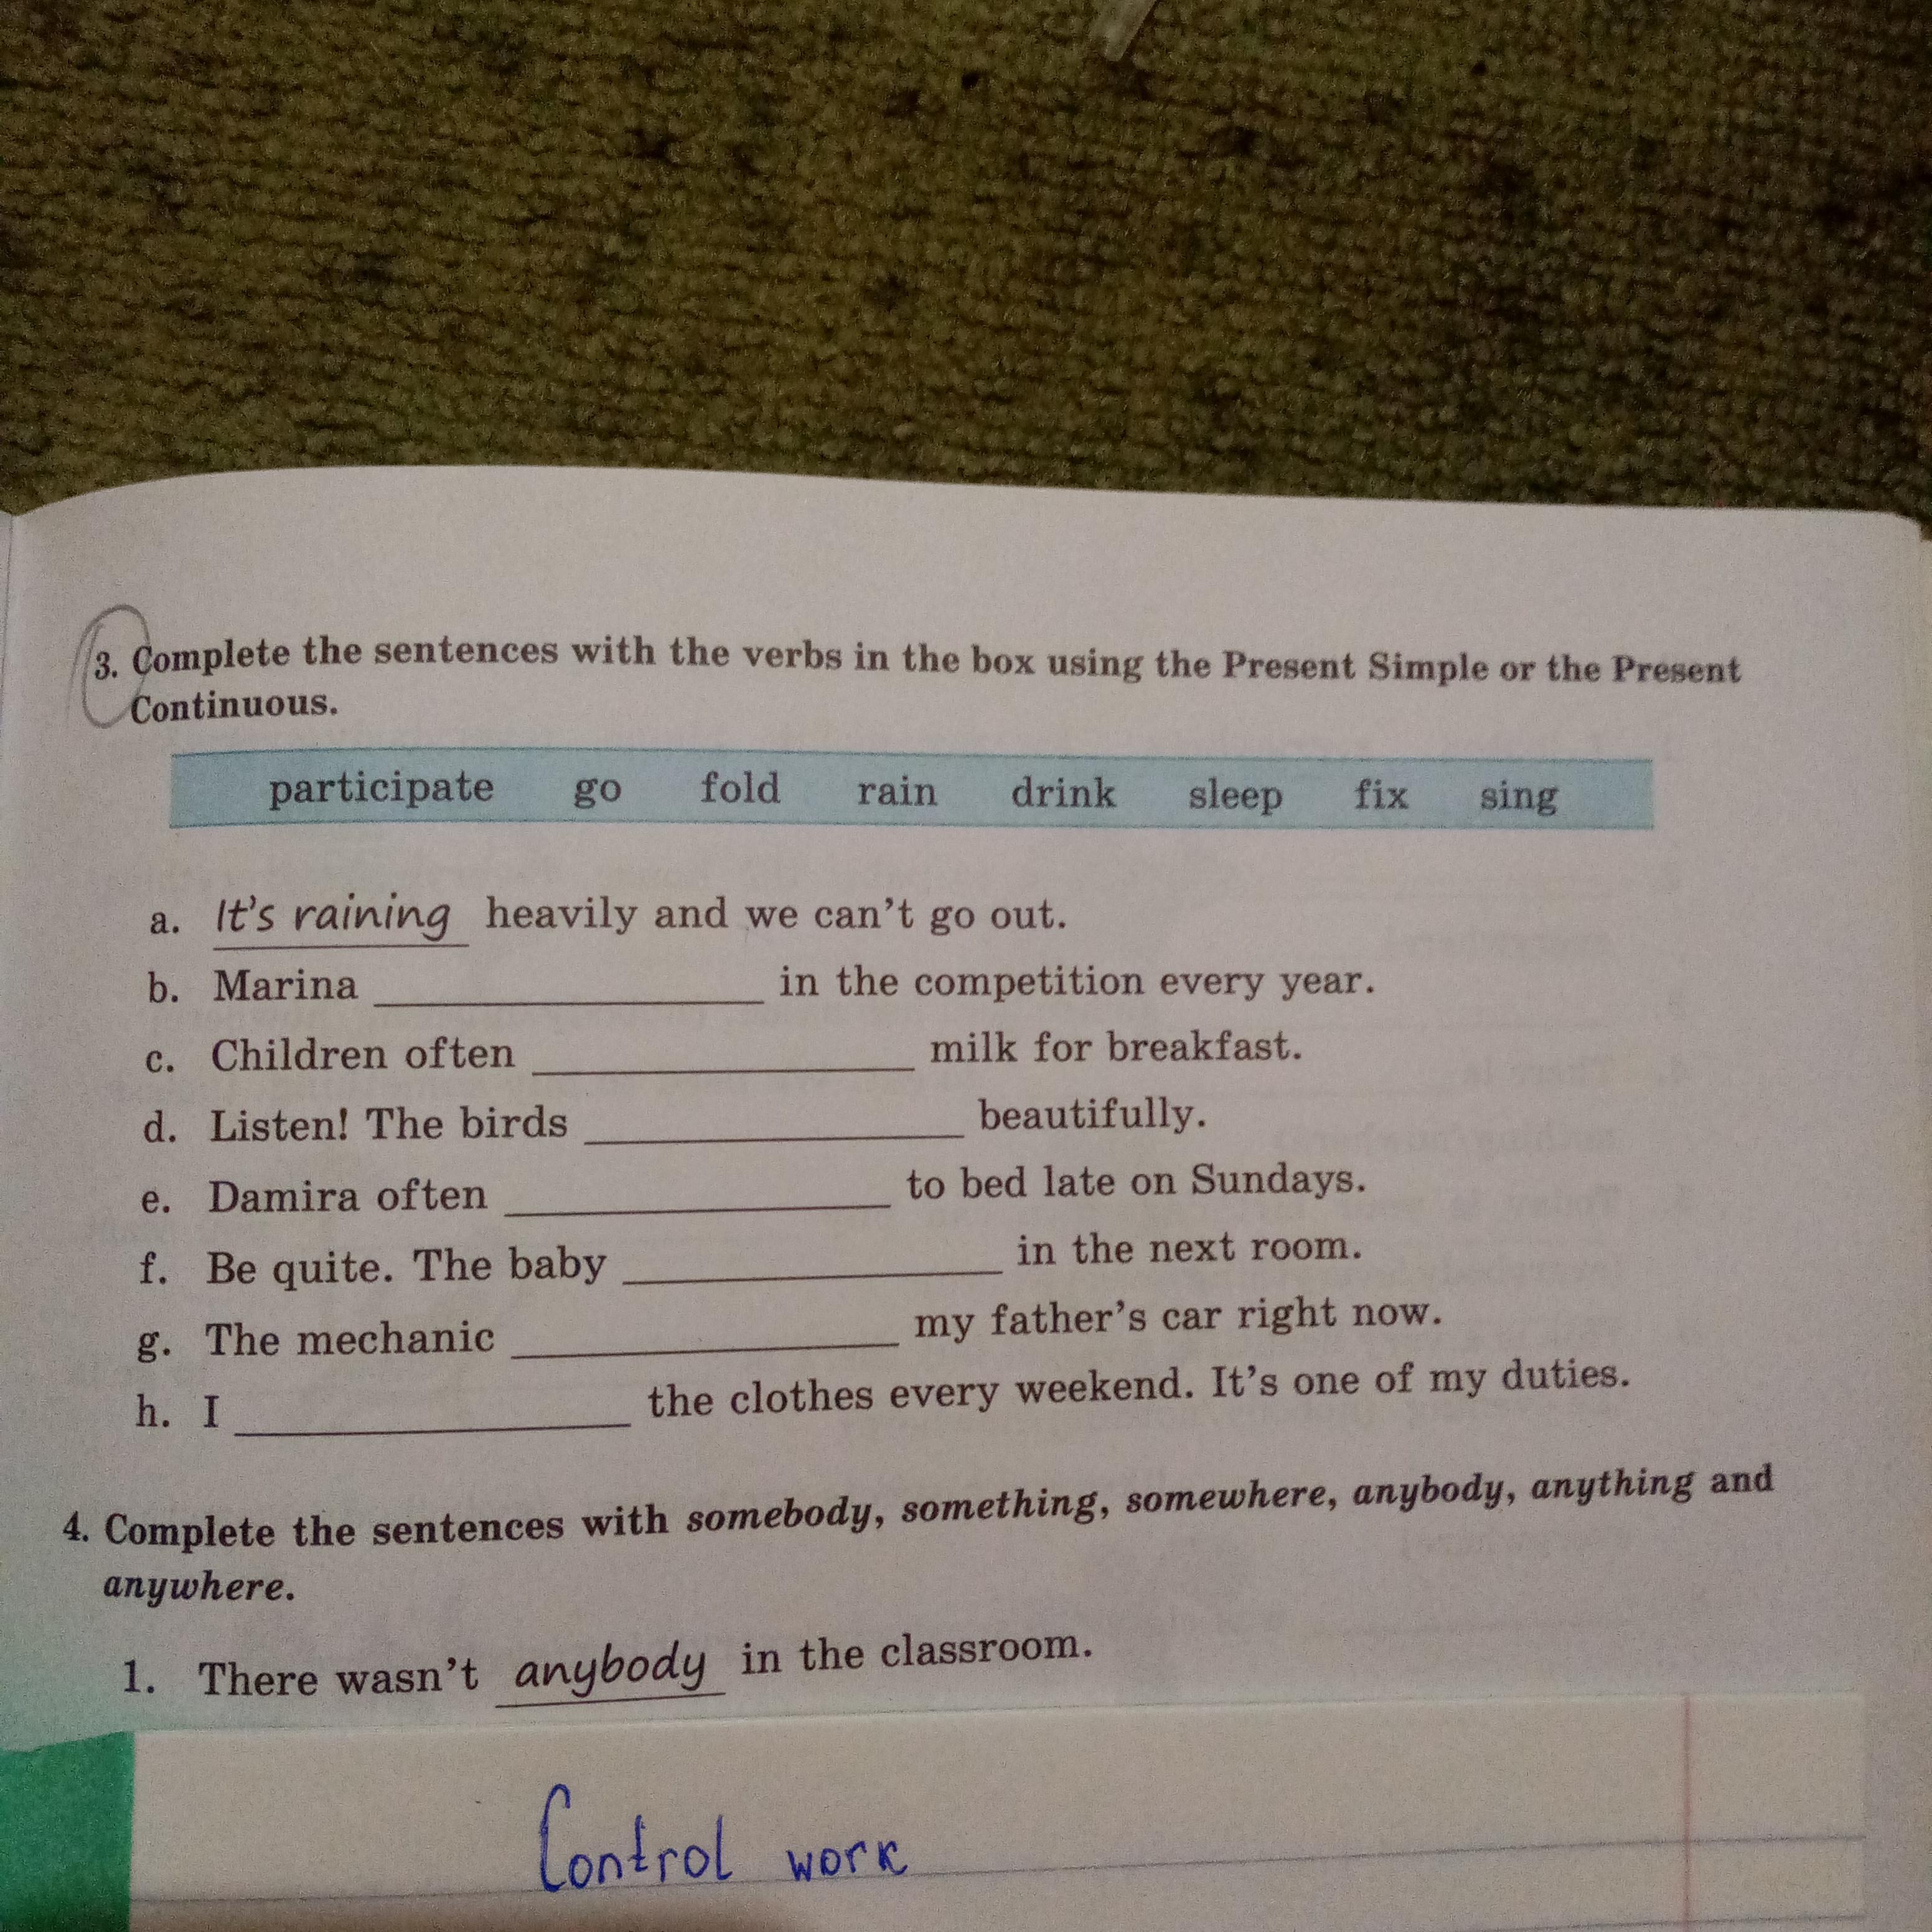 3. Complete the sentences with the verbs in the box using the Present Simple or the Present
Continuous.
participate go fold rain drink sleep fix sing
a. It's raining heavily and we can't go out.
b. Marina ____________ in the competition every year.
c. Children often ____________ milk for breakfast.
d. Listen! The birds ____________ beautifully.
e. Damira often ____________ to bed late on Sundays.
f. Be quite. The baby ____________ in the next room.
g. The mechanic ____________ my father's car right now.
h. I ____________ the clothes every weekend. It's one of my duties.
4. Complete the sentences with somebody, something, somewhere, anybody, anything and
anywhere.
1. There wasn't anybody in the classroom.
Control work